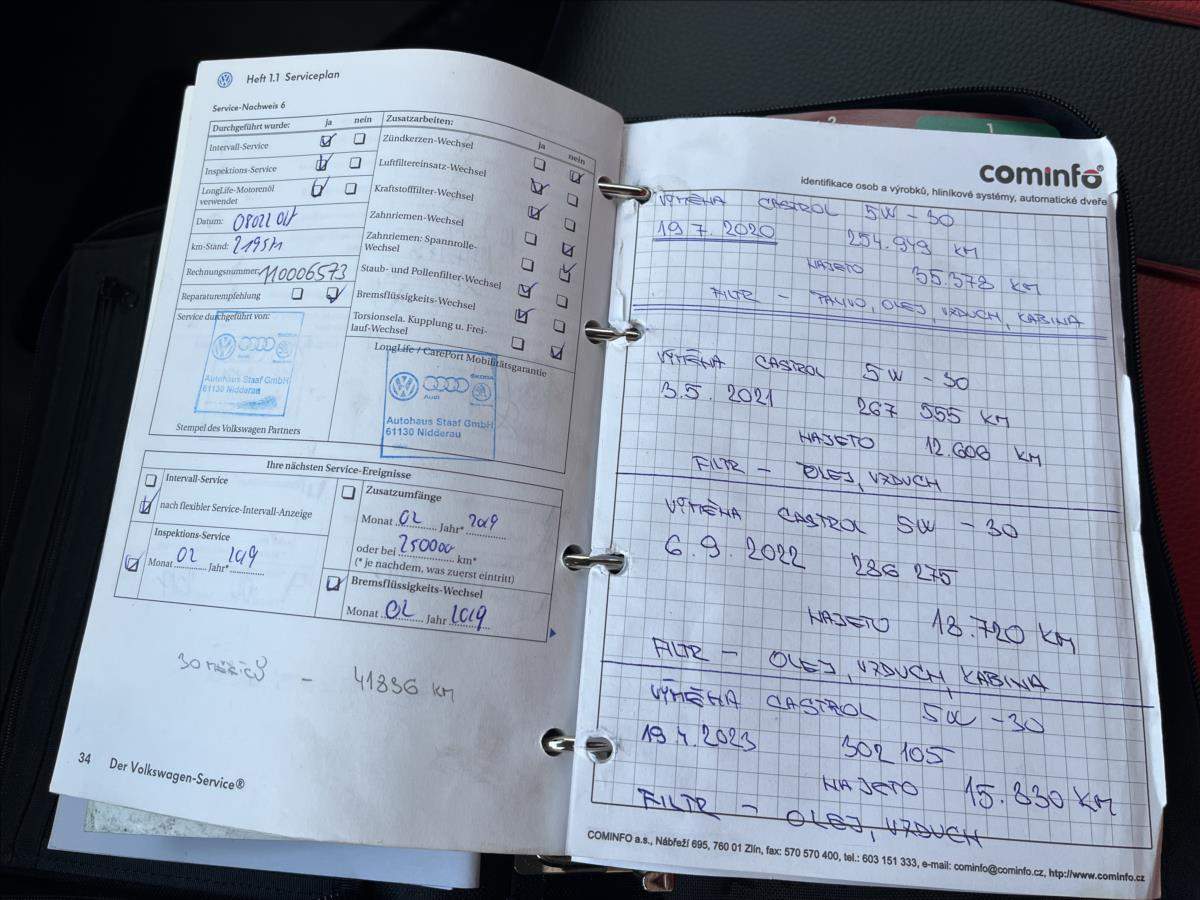 Heft 1.1 Serviceplan
Service-Nachweis 6
Durchgeführt wurde: ja nein
Intervall-Service
Inspektions-Service
LongLife-Motorenöl
verwendet
Datum:
km-Stand:
Rechnungsnummer 110006573
Reparaturempfehlung
Service durchgeführt von:
Audi
Autohaus Staaf GmbH
61130 Nidderau
Stempel des Volkswagen Partners
Zusatzarbeiten: ja nein
Zündkerzen-Wechsel
Luftfiltereinsatz-Wechsel
Kraftstofffilter-Wechsel
Zahnriemen-Wechsel
Zahnriemen: Spannrolle-
Wechsel
Staub- und Pollenfilter-Wechsel
Bremsflüssigkeits-Wechsel
Torsionsela. Kupplung u. Frei-
lauf-Wechsel
LongLife / CarePort Mobilitätsgarantie
Audi
Autohaus Staaf GmbH
61130 Nidderau
Ihre nächsten Service-Ereignisse
Intervall-Service
nach flexibler Service-Intervall-Anzeige
Inspektions-Service
Monat 02 Jahr* 2019
Zusatzumfänge
Monat 02 Jahr* 2019
oder bei 250000 km*
(* je nachdem, was zuerst eintritt)
Bremsflüssigkeits-Wechsel
Monat 02 Jahr 2019
30 MĚSÍCŮ - 41836 KM
34 Der Volkswagen-Service®
2
1
cominfo®
identifikace osob a výrobků, hliníkové systémy, automatické dveře
VÝMĚNA CASTROL 5W-30
19.7.2020 254.949 KM
NAJETO 35.378 KM
FILTR - PALIVO, OLEJ, VZDUCH, KABINA
VÝMĚNA CASTROL 5W-30
3.5.2021 267 555 KM
NAJETO 12.606 KM
FILTR - OLEJ, VZDUCH
VÝMĚNA CASTROL 5W-30
6.9.2022 286 275
NAJETO 18.720 KM
FILTR - OLEJ, VZDUCH, KABINA
VÝMĚNA CASTROL 5W-30
19.4.2023 302 105
NAJETO 15.830 KM
FILTR - OLEJ, VZDUCH
COMINFO a.s., Nábřeží 695, 760 01 Zlín, fax: 570 570 400, tel.: 603 151 333, e-mail: cominfo@cominfo.cz, http://www.cominfo.cz